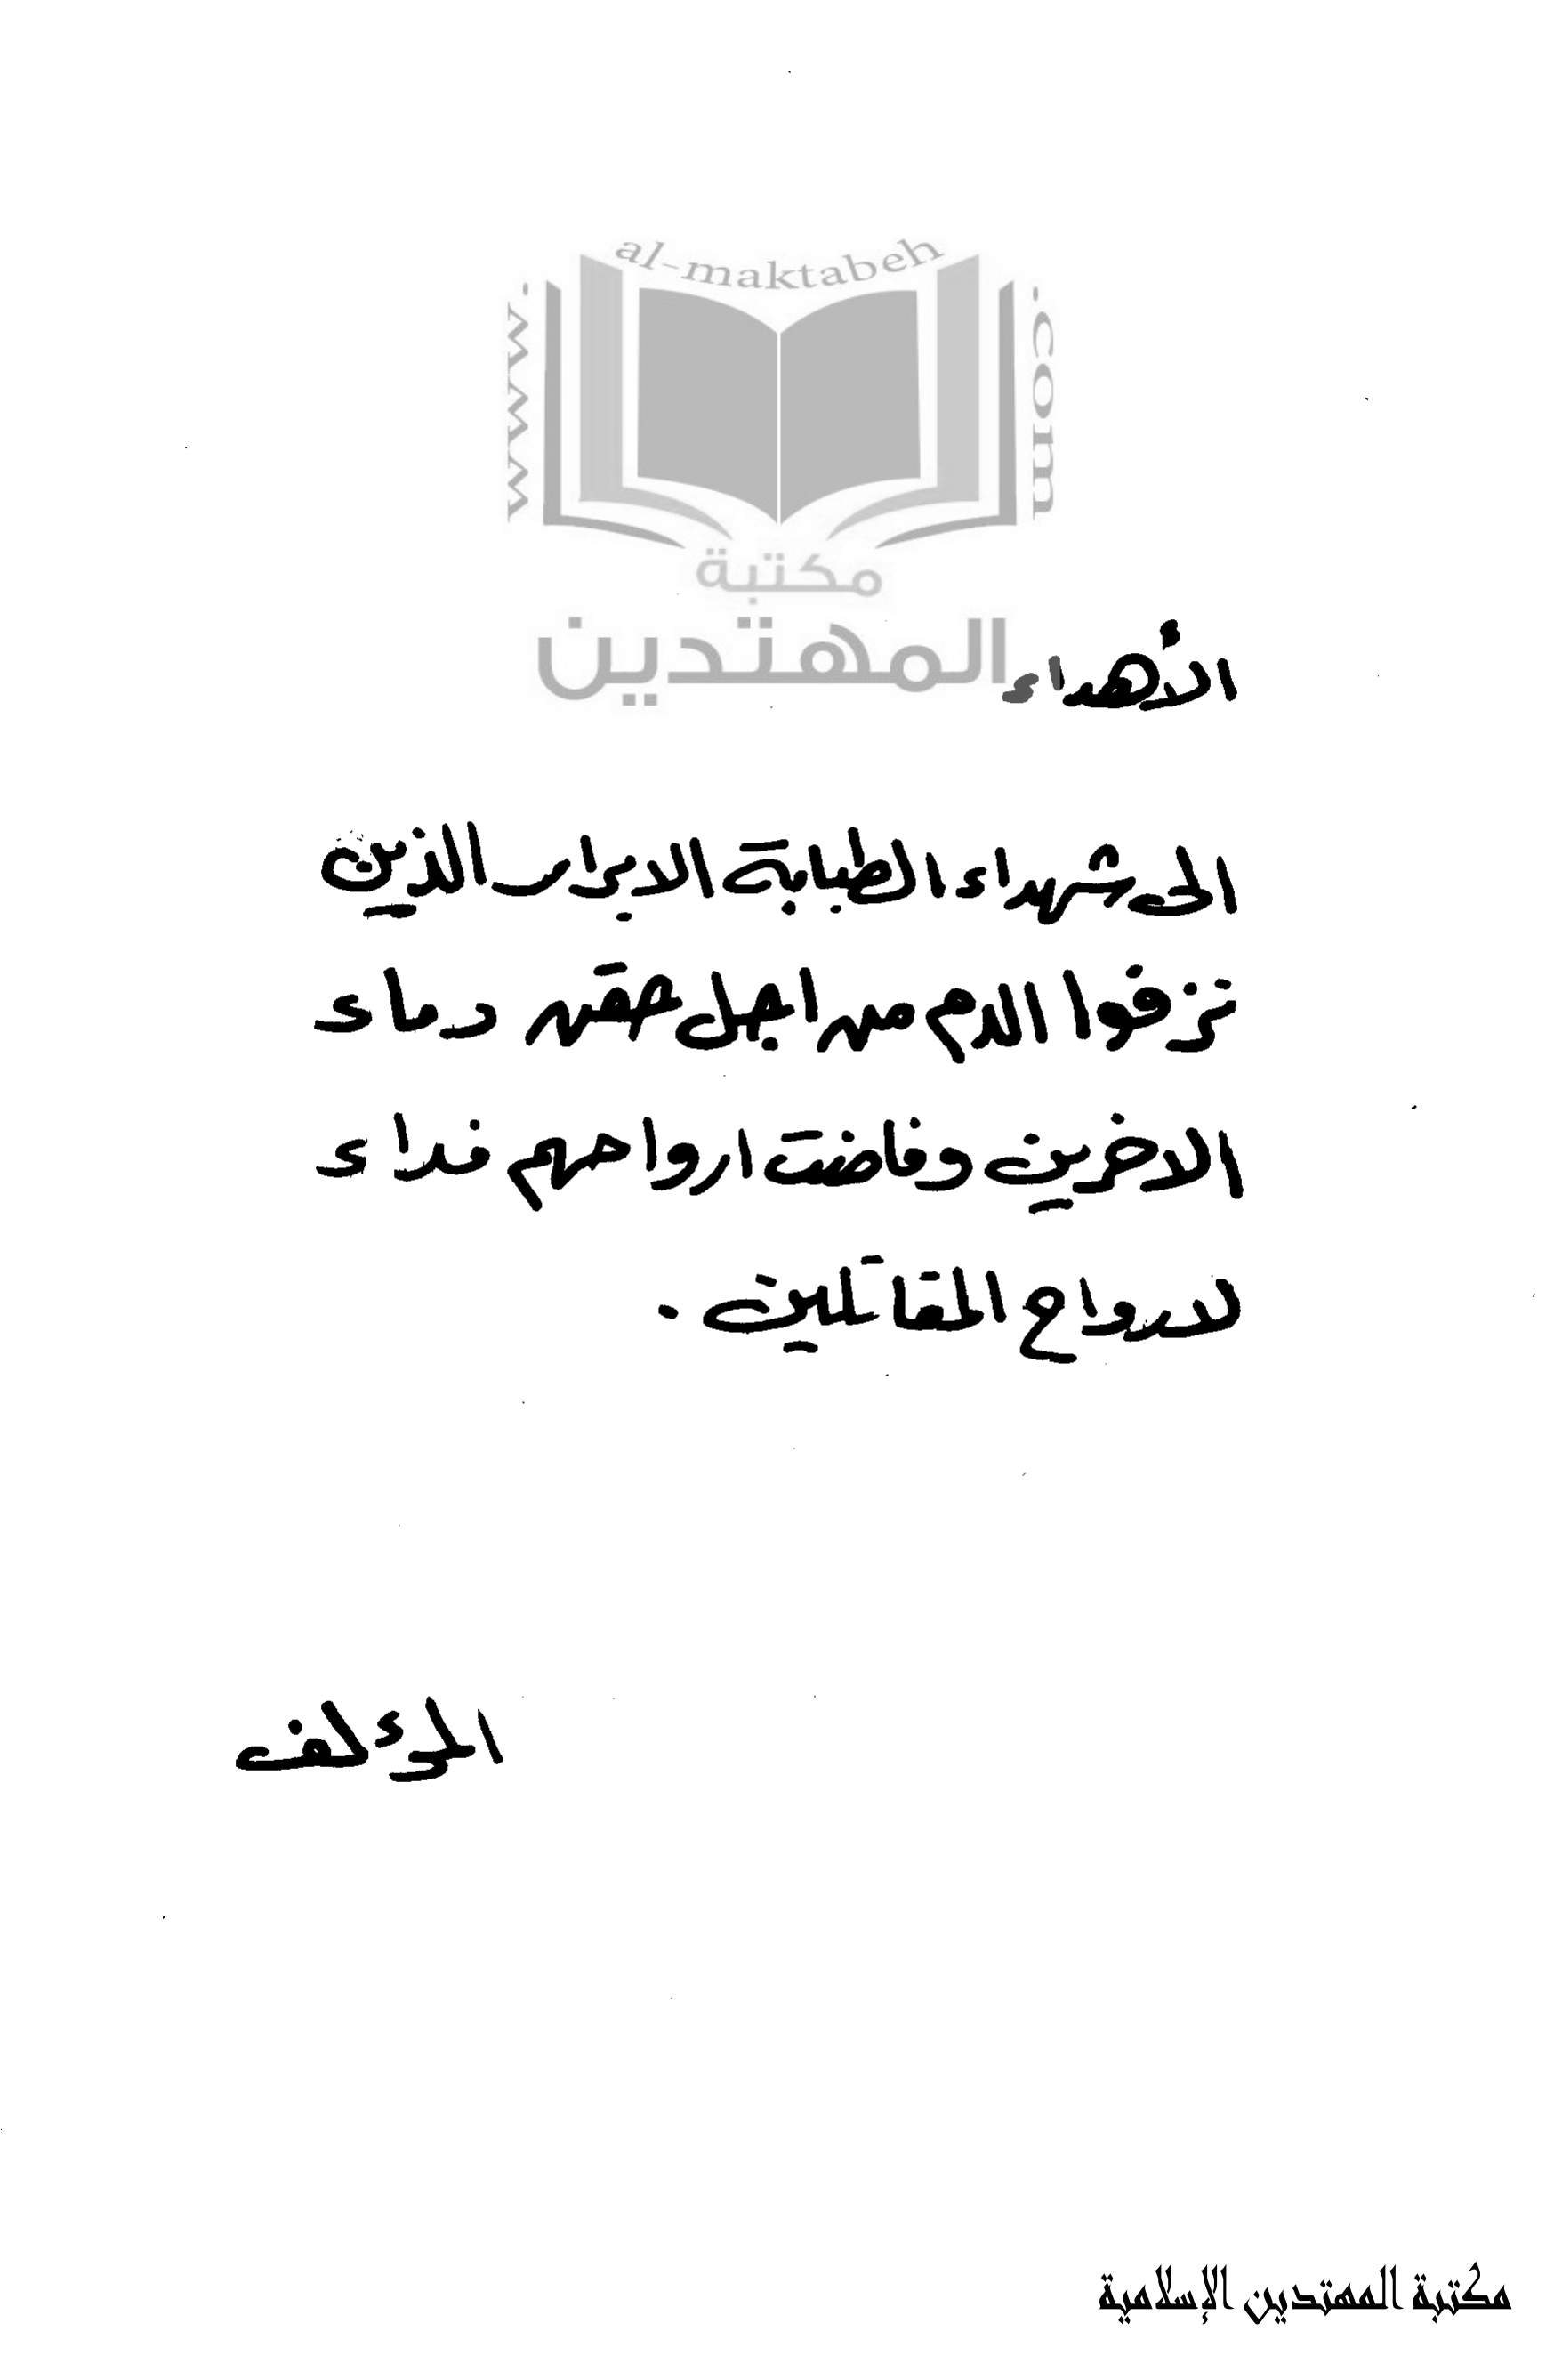 www.al-maktabeh.com
مكتبة
المهتدين
الأهداء
الى شهداء الطبابة الابرار الذين
نزفوا الدم من اجل حقن دماء
الاخرين وفاضت ارواحهم فداء
لارواح المقاتلين .
المؤلف
مكتبة المهتدين الإسلامية